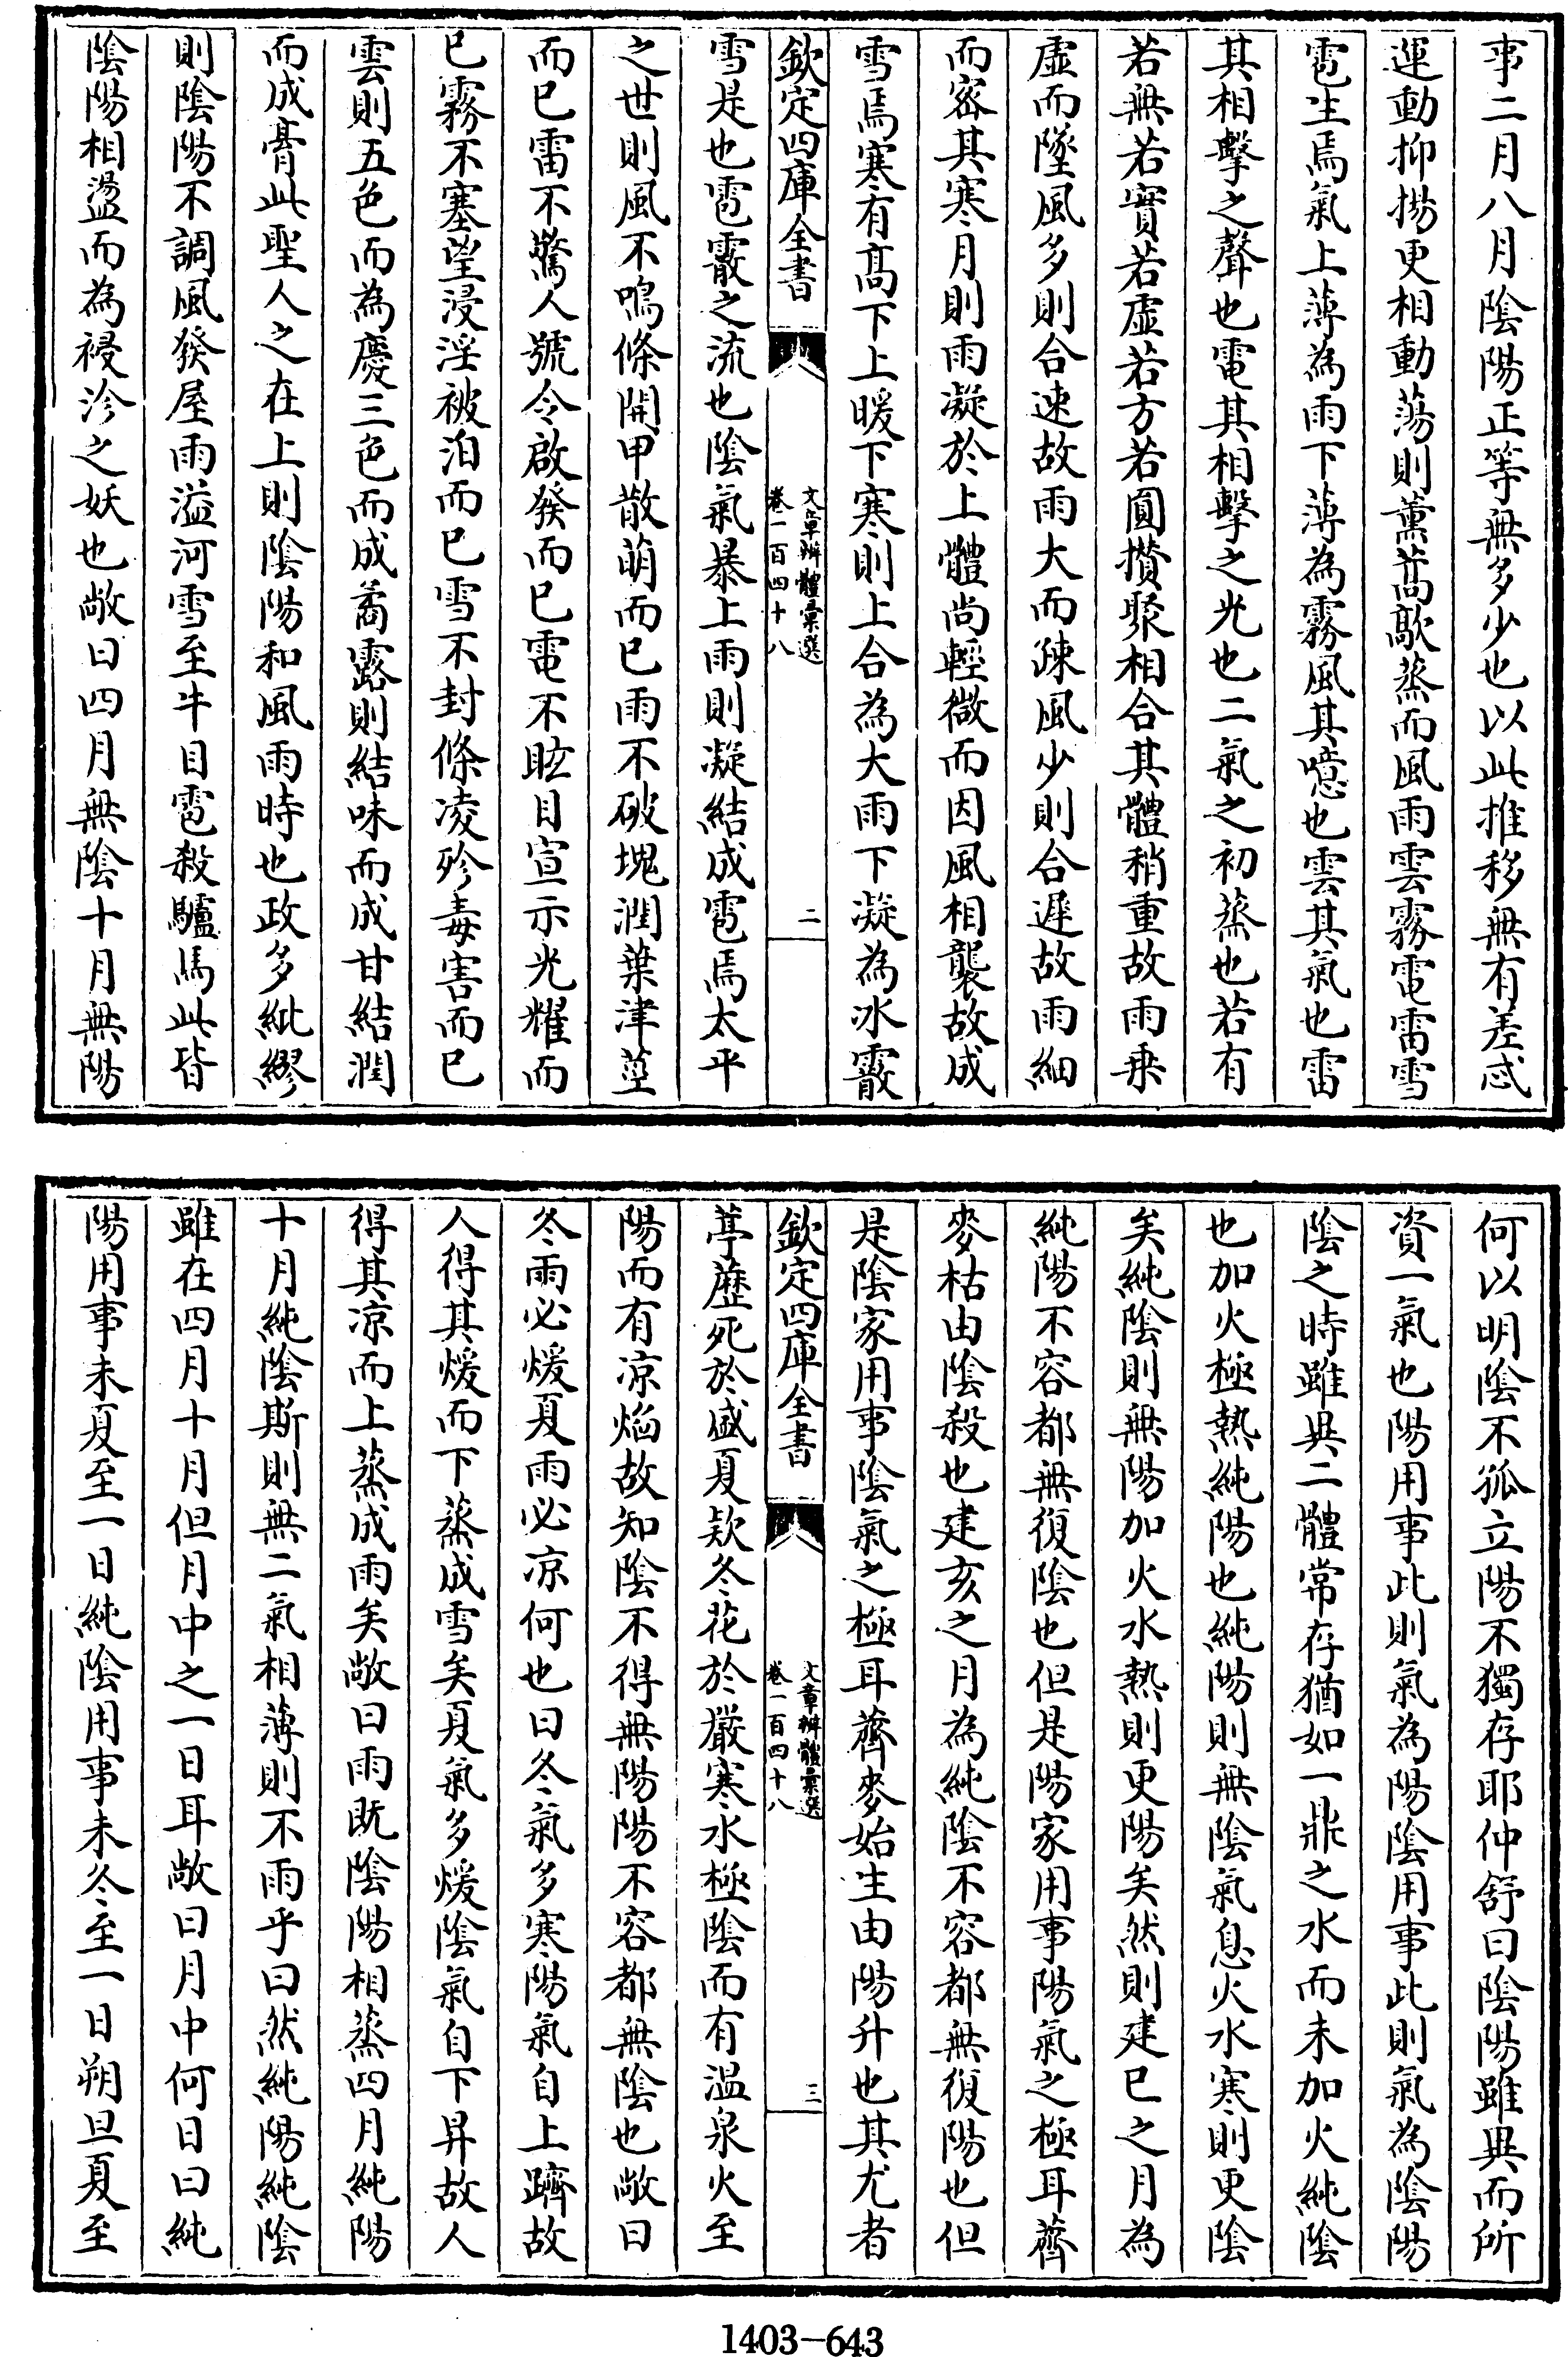 事二月八月陰陽正等無多少也以此推移無有差忒
運動抑揚更相動蕩則薰蒿歊蒸而風雨雲霧電雷雪
雹生焉氣上薄為雨下薄為霧風其噫也雲其氣也雷
其相擊之聲也電其相擊之光也二氣之初蒸也若有
若無若實若虛若方若圓攢聚相合其體稍重故雨乗
虛而墜風多則合速故雨大而疎風少則合遲故雨細
而宻其寒月則雨凝於上體尚輕微而因風相襲故成
雪焉寒有髙下上暖下寒則上合為大雨下凝為冰霰
欽定四庫全書
文章辨體彚選
卷一百四十八
二
雪是也雹霰之流也陰氣暴上雨則凝結成雹焉太平
之世則風不鳴條開甲散萌而已雨不破塊潤葉津莖
而已雷不驚人號令啟發而已電不眩目宣示光耀而
已霧不塞望浸淫被泊而已雪不封條凌殄毒害而已
雲則五色而為慶三色而成矞露則結味而成甘結潤
而成膏此聖人之在上則陰陽和風雨時也政多紕繆
則陰陽不調風發屋雨溢河雪至牛目雹殺驢馬此皆
陰陽相盪而為祲沴之妖也敞曰四月無陰十月無陽
何以明陰不孤立陽不獨存耶仲舒曰陰陽雖異而所
資一氣也陽用事此則氣為陽陰用事此則氣為陰陽
陰之時雖異二體常存猶如一鼎之水而未加火純陰
也加火極熱純陽也純陽則無陰氣息火水寒則更陰
矣純陰則無陽加火水熱則更陽矣然則建巳之月為
純陽不容都無復陰也但是陽家用事陽氣之極耳薺
麥枯由陰殺也建亥之月為純陰不容都無復陽也但
是陰家用事陰氣之極耳薺麥始生由陽升也其尤者
欽定四庫全書
文章辨體彚選
卷一百四十八
三
葶藶死於盛夏欵冬花於嚴寒水極陰而有温泉火至
陽而有凉焰故知陰不得無陽陽不容都無陰也敞曰
冬雨必煖夏雨必凉何也曰冬氣多寒陽氣自上躋故
人得其煖而下蒸成雪矣夏氣多煖陰氣自下昇故人
得其凉而上蒸成雨矣敞曰雨既陰陽相蒸四月純陽
十月純陰斯則無二氣相薄則不雨乎曰然純陽純陰
雖在四月十月但月中之一日耳敞曰月中何日曰純
陽用事未夏至一日純陰用事未冬至一日朔旦夏至
1403-643